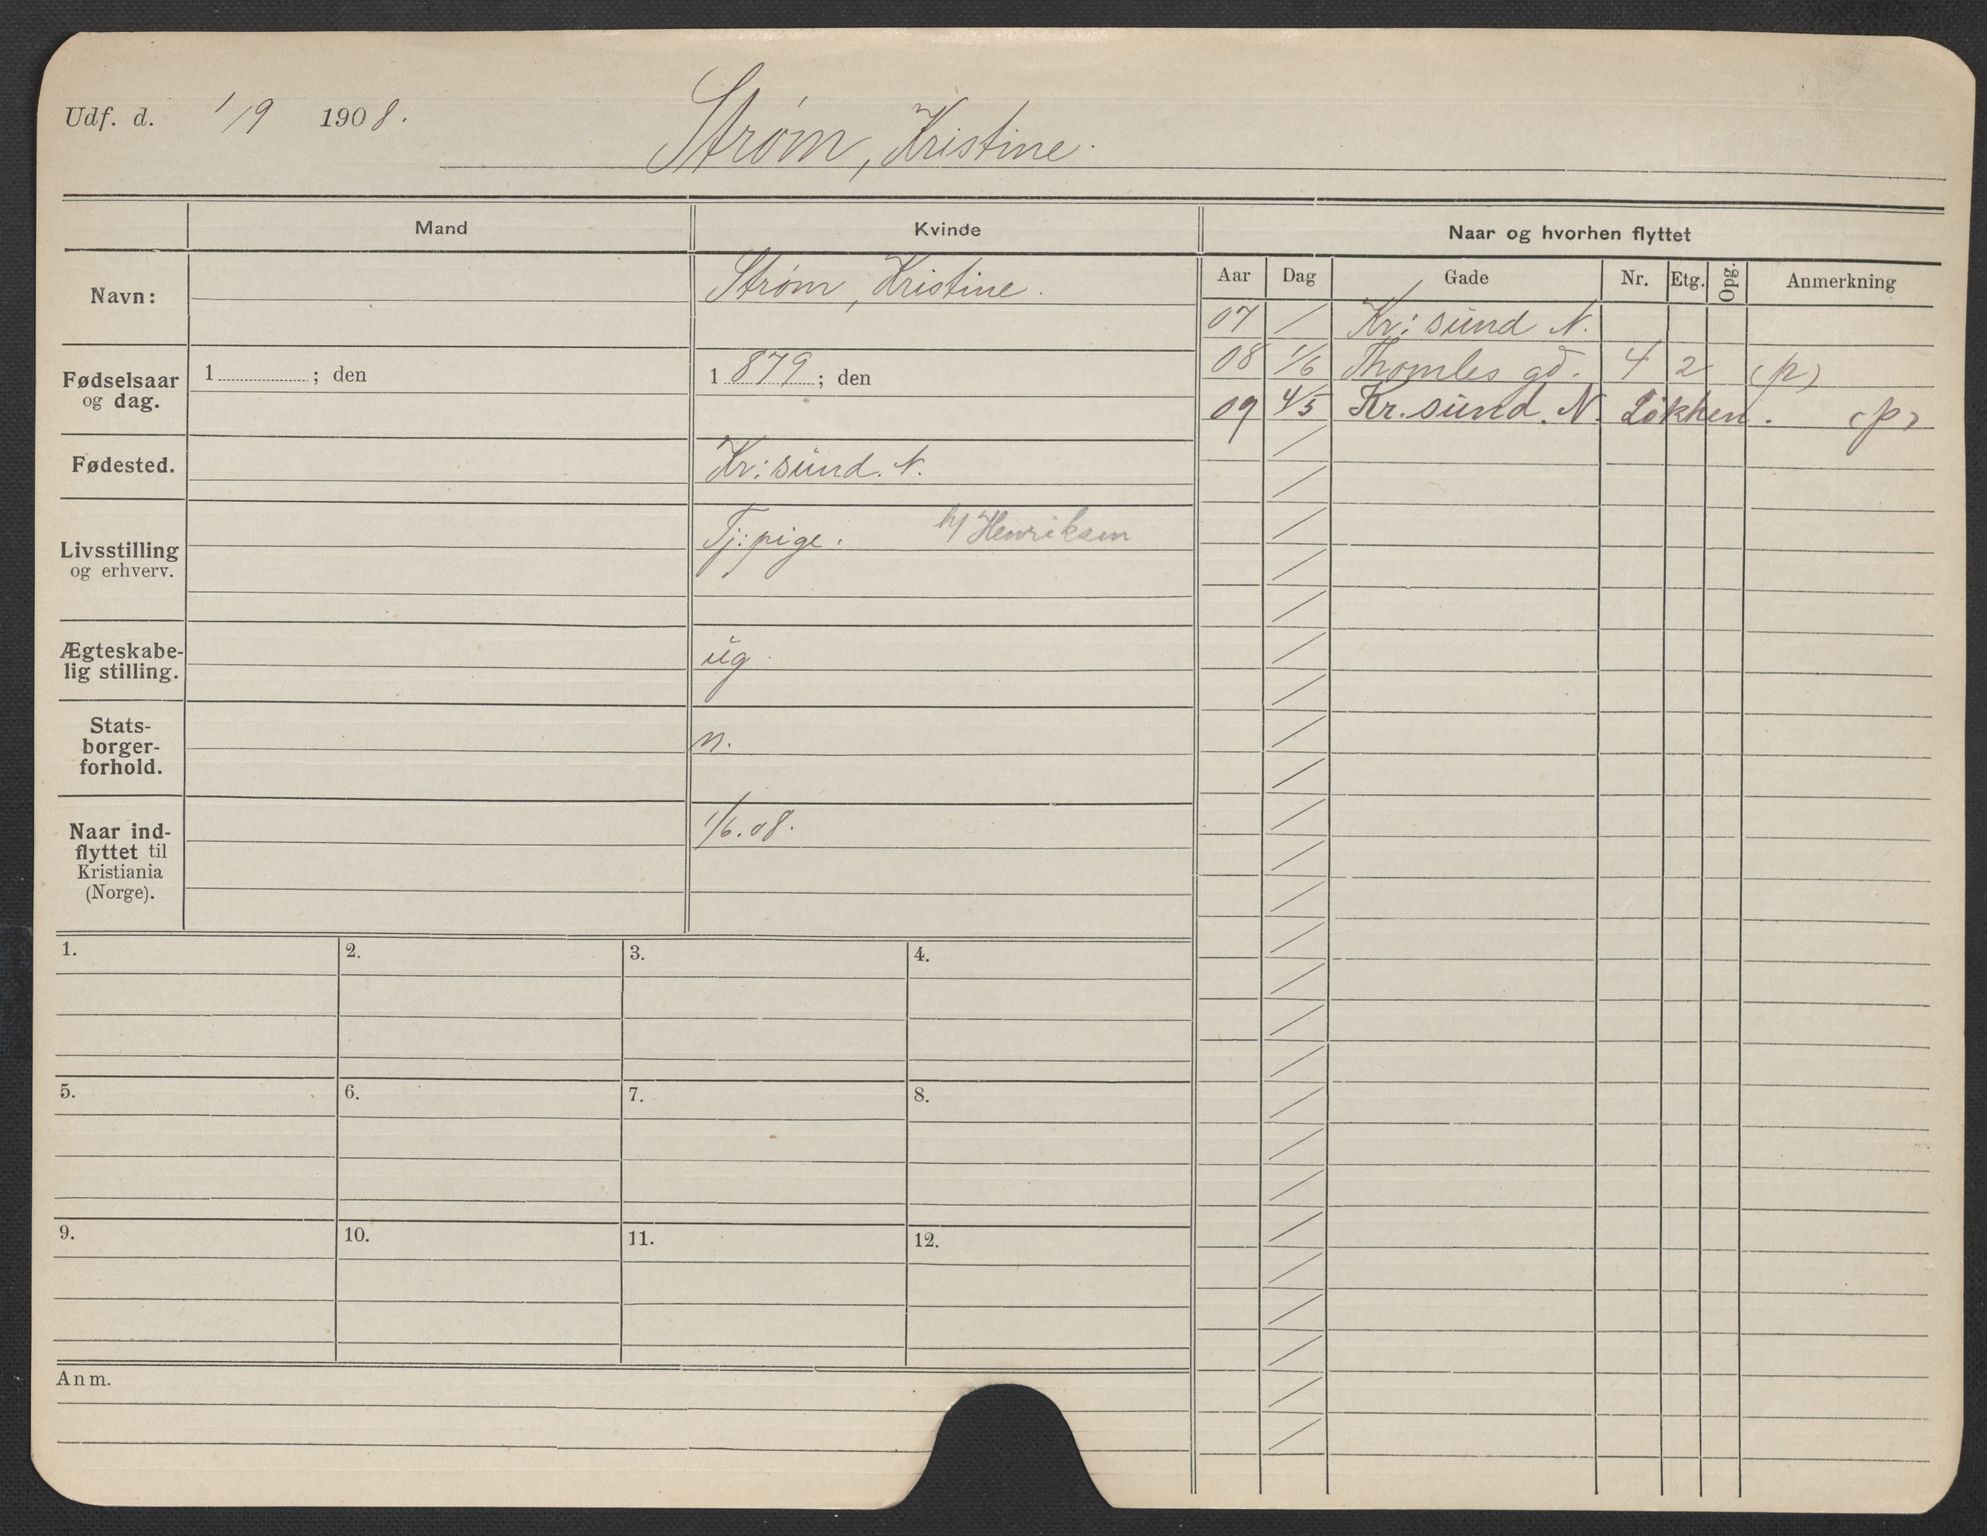 Udf. d. 1/9 1908.
Strøm, Kristine.
Mand
Kvinde
Naar og hvorhen flyttet
Navn:
Strøm, Kristine.
Fødselsaar
og dag.
1 ; den
1 879 ; den
Fødested.
Kr:sund. N.
Livsstilling
og erhverv.
Tj:pige. h/ Henriksen
Ægteskabe-
lig stilling.
ug.
Stats-
borger-
forhold.
n.
Naar ind-
flyttet til
Kristiania
(Norge).
1/6. 08.
Aar Dag Gade Nr. Etg. Opg. Anmerkning
07 / Kr:sund N.
08 1/6 Thomles gd. 4 2 (p)
09 4/5 Kr.sund. N. Løkken. (p)
1. 2. 3. 4.
5. 6. 7. 8.
9. 10. 11. 12.
Anm.